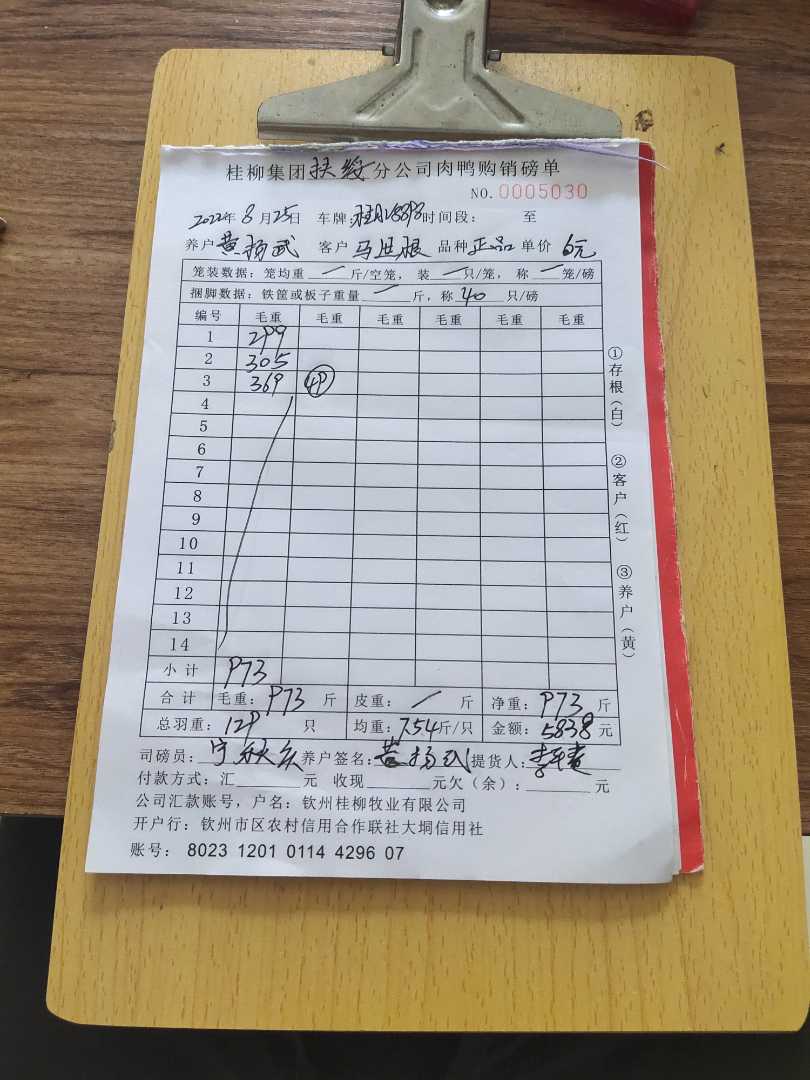 桂柳集团扶绥分公司肉鸭购销磅单
NO.0005030
2022年8月25日 车牌: 时间段: 至
养户黄扬武 客户马世根 品种正品 单价6元
笼装数据:笼均重 / 斤/空笼,装 / 只/笼,称 / 笼/磅
捆脚数据:铁筐或板子重量 / 斤,称40只/磅
编号 毛重 毛重 毛重 毛重 毛重 毛重
1 299
2 305
3 369 49
4
5
6
7
8
9
10
11
12
13
14
小计 973
合计 毛重:973斤 皮重: / 斤 净重:973斤
总羽重:129只 均重:7.54斤/只 金额:5838元
司磅员: 养户签名:黄扬武 提货人:
付款方式:汇______元 收现______元欠(余):______元
公司汇款账号,户名:钦州桂柳牧业有限公司
开户行:钦州市区农村信用合作联社大垌信用社
账号: 8023 1201 0114 4296 07
①存根(白) ②客户(红) ③养户(黄)